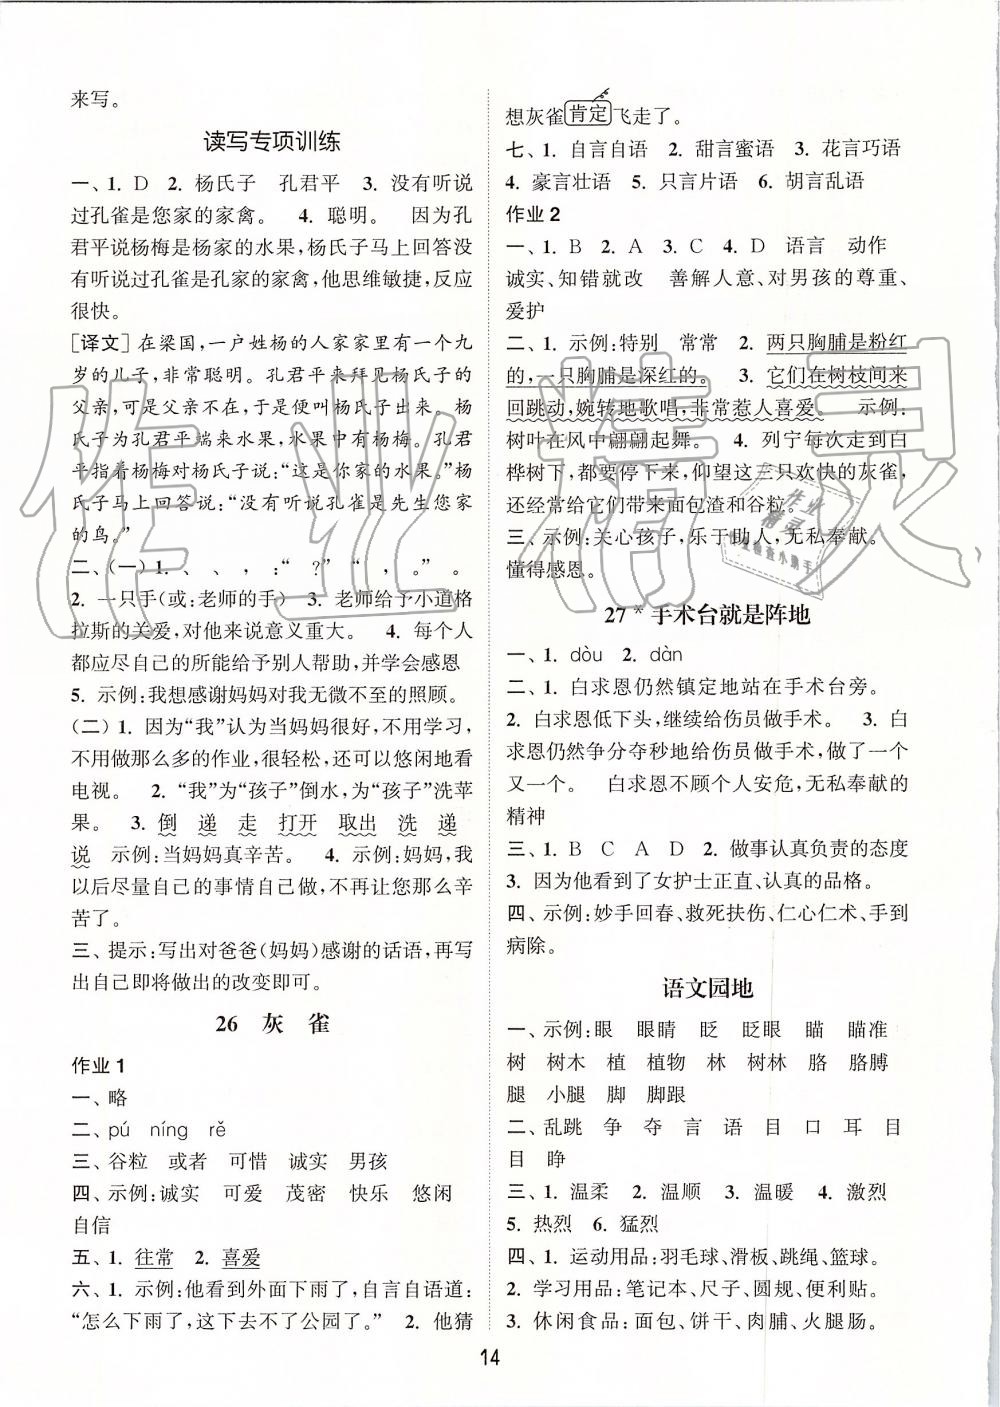 来写。
读写专项训练
一、1. D 2. 杨氏子 孔君平 3. 没有听说
过孔雀是您家的家禽。 4. 聪明。 因为孔
君平说杨梅是杨家的水果,杨氏子马上回答没
有听说过孔雀是孔家的家禽,他思维敏捷,反应
很快。
[译文]在梁国,一户姓杨的人家家里有一个九
岁的儿子,非常聪明。孔君平来拜见杨氏子的
父亲,可是父亲不在,于是便叫杨氏子出来。杨
氏子为孔君平端来水果,水果中就有杨梅。孔君
平指着杨梅对杨氏子说:“这是你家的水果。”杨
氏子马上回答说:“没有听说孔雀是先生您家
的鸟。”
二、(一) 1. 、 、 , :“ ?” “ , 。” 。
2. 一只手(或:老师的手) 3. 老师给予小道格
拉斯的关爱,对他来说意义重大。 4. 每个人
都应尽自己的所能给予别人帮助,并学会感恩
5. 示例:我想感谢妈妈对我无微不至的照顾。
(二) 1. 因为“我”认为当妈妈很好,不用学习,
不用做那么多的作业,很轻松,还可以悠闲地看
电视。 2. “我”为“孩子”倒水,为“孩子”洗苹
果。 3. 倒 递 走 打开 取出 洗 递
说 示例:当妈妈真辛苦。 4. 示例:妈妈,我
以后尽量自己的事情自己做,不再让您那么辛
苦了。
三、提示:写出对爸爸(妈妈)感谢的话语,再写
出自己即将做出的改变即可。
26 灰 雀
作业 1
一、略
二、pú níng rě
三、谷粒 或者 可惜 诚实 男孩
四、示例:诚实 可爱 茂密 快乐 悠闲
自信
五、1. 往常 2. 喜爱
六、1. 示例:他看到外面下雨了,自言自语道:
“怎么下雨了,这下去不了公园了。” 2. 他猜
想灰雀肯定飞走了。
七、1. 自言自语 2. 甜言蜜语 3. 花言巧语
4. 豪言壮语 5. 只言片语 6. 胡言乱语
作业 2
一、1. B 2. A 3. C 4. D 语言 动作
诚实、知错就改 善解人意、对男孩的尊重、
爱护
二、1. 示例:特别 常常 2. 两只胸脯是粉红
的,一只胸脯是深红的。 3. 它们在树枝间来
回跳动,婉转地歌唱,非常惹人喜爱。 示例:
树叶在风中翩翩起舞。 4. 列宁每次走到白
桦树下,都要停下来,仰望这三只欢快的灰雀,
还经常给它们带来面包渣和谷粒。
三、示例:关心孩子,乐于助人,无私奉献。
懂得感恩。
27 * 手术台就是阵地
一、1. dòu 2. dàn
二、1. 白求恩仍然镇定地站在手术台旁。
2. 白求恩低下头,继续给伤员做手术。 3. 白
求恩仍然争分夺秒地给伤员做手术,做了一个
又一个。 白求恩不顾个人安危,无私奉献的
精神
三、1. B C A D 2. 做事认真负责的态度
3. 因为他看到了女护士正直、认真的品格。
四、示例:妙手回春、救死扶伤、仁心仁术、手到
病除。
语文园地
一、示例:眼 眼睛 眨 眨眼 瞄 瞄准
树 树木 植 植物 林 树林 胳 胳膊
腿 小腿 脚 脚跟
二、乱跳 争 夺 言 语 目 口 耳 目
目 睁
三、1. 温柔 2. 温顺 3. 温暖 4. 激烈
5. 热烈 6. 猛烈
四、1. 运动用品:羽毛球、滑板、跳绳、篮球。
2. 学习用品:笔记本、尺子、圆规、便利贴。
3. 休闲食品:面包、饼干、肉脯、火腿肠。
14
作业精灵
作业
精灵
作业检查小助手